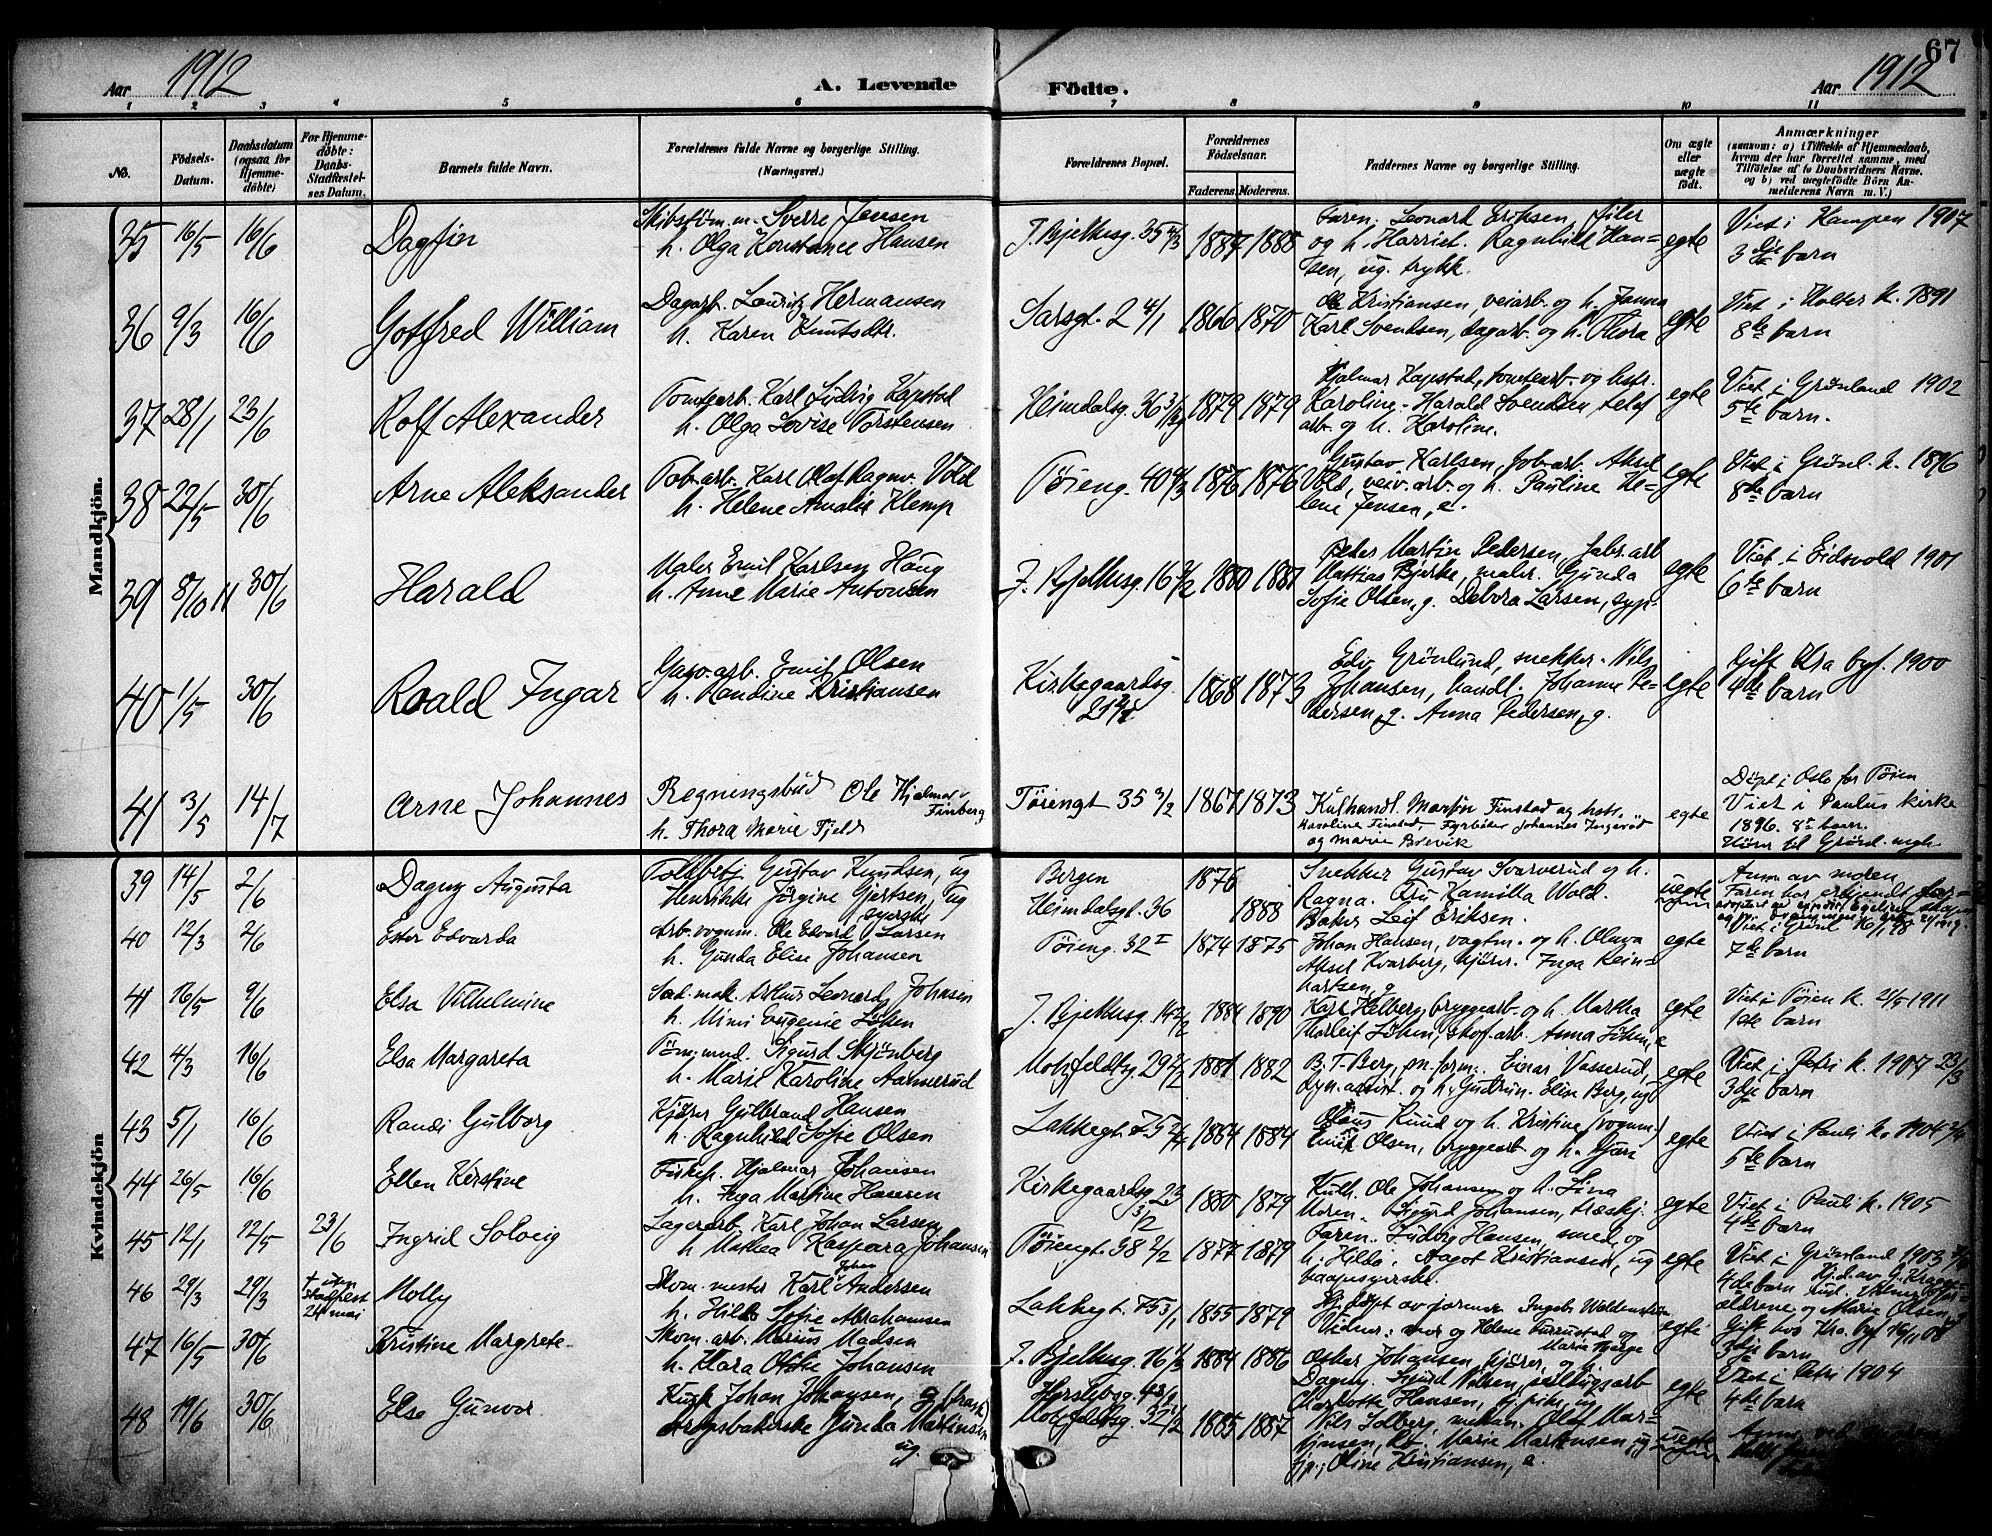 67
Aar 1912
A. Levende
Födte.
Aar 1912
1 2 3 4 5 6 7 8 9 10 11
No.
Födsels-
Datum.
Daabsdatum
(ogsaa for
Hjemme-
döbte)
For Hjemme-
döbte:
Daabs-
Stadfæstel-
ses Datum.
Barnets fulde Navn.
Forældrenes fulde Navne og borgerlige Stilling.
(Næringsvei.)
Forældrenes Bopæl.
Forældrenes
Födselsaar.
Faderens. Moderens.
Faddernes Navne og borgerlige Stilling.
Om ægte
eller
uægte
födt.
Anmærkninger
(saasom: a) i Tilfælde af Hjemmedaab,
hvem der har forrettet samme, med
Tilföielse af to Daabsvidners Navne.
og b) ved uægtefödte Börn An-
melderens Navn m. V.)
Mandkjön.
35 16/5 16/6 Dagfin
Skibstöm.m. Sverre Jensen
h. Olga Konstance Hansen
J. Bjelkesg. 35 1887 1888
Faren. Leonard Eriksen, filer
og h. Harriet. Ragnhild Han-
sen, ug. trykk.
egte
Viet i Kampen 1907
3dje barn
36 9/3 16/6 Gotfred William
Dagarb. Lauritz Hermansen
h. Karen Knutsdtr.
Sarsgt. 2 4/1 1866 1870
Ole Kristiansen, veiarb. og h. Janna
Karl Svendsen, dagarb. og h. Thora
egte
Viet i Holter k. 1891
8de barn
37 28/1 23/6 Rolf Alexander
Tomtearb. Karl Ludvig Kapstad
h. Olga Lovise Torstensen
Heimdalsg. 36 1879 1879
Hjalmar Kapstad, tomtearb. og hstr.
Karoline. Harald Svendsen, telef
arb. og h. Karoline.
egte
Viet i Grønland 1902
5te barn.
38 22/5 30/6 Arne Aleksander
Tob.arb. Karl Olaf Ragnv. Vold
h. Helene Amalie Klemp
Töieng. 40 1876 1876
Gustav Karlsen, fob.arb. Aksel
Vold, veiv.arb. og h. Pauline He-
lene Jensen, e.
egte
Viet i Grönl. k. 1896
8de barn
39 8/10 11 30/6 Harald
Maler Emil Karlsen Haug
h. Anne Marie Antonsen
J. Bjelkesg. 16 1880 1881
Peder Martin Pedersen, fabr.arb
Mattias Bjerke, maler. Gunda
Sofie Olsen, g. Debora Larsen, syp.
egte
Viet i Eidsvold 1901
6te barn
40 1/5 30/6 Roald Ingar
Gasv.arb. Emil Olsen
h. Randine Kristiansen
Kirkegaardsg.
21 1868 1873
Edv. Grönlund, snekker. Nils
Johansen, handl. Johanne Pe-
dersen, g. Anna Pedersen, g.
egte
Gift Kra byf. 1900
4de barn
41 3/5 14/7 Arne Johannes
Regningsbud Ole Hjalmar
Finberg
h. Thora Marie Fjeld
Töiengt 35 3/2 1867 1873
Kulhandl. Martin Finstad og hstr.
Karoline Finstad, Fyrböter Johannes Ingeröd
og Marie Brevik
egte
Döpt i Oslo for Töien
Viet i Paulus kirke
1896. 8de barn.
Hörer til Grönl. mgh.
Kvindekjön
39 14/5 2/6 Dagny Augusta
Toldbetj Gustav Knudsen, ug
Henrikke Jörgine Gjertsen, ug
syerske
Bergen
Heimdalsgt. 36
1876
1888
Snekker Gustav Svarverud og h.
Ragna. Kamilla Wold.
Baker Leif Eriksen.
uegte
Anm av moren
Faren har erkjendt far-
skapet
40 12/3 2/6 Ester Edvarda
Arb. vognm. Ole Edvard Larsen
h. Gunda Elise Johansen
Töieng. 32 I 1874 1875
Johan Hansen, vagtm. og h. Oluva
Aksel Kvarberg, kjörer. Inga Rein-
hartsen, g
egte
Viet i Grönl
7de barn
41 16/5 9/6 Elsa Vilhelmine
Sad.mak. Arthur Leonard Johansen
h. Mimi Eugenie Löken
J. Bjelkesg. 14 2/2 1884 1890
Karl Helberg, bryggearb. og h. Martha
Thorleif Löken, skof.arb. Anna Löken, e
egte
Viet i Töien k. 21/5 1911
1ste barn
42 4/3 16/6 Elsa Margareta
Töm.mnd. Sigurd Skjönberg
h. Marie Karoline Aamerud
Motzfeldtsg. 29 2/2 1881 1882
B. T. Berg, sn.form. Einar Vasserud,
dyn.assist. og h. Gudrun. Elise Berg, ug
egte
Viet i Petri k. 1907 23/3
3dje barn
43 5/1 16/6 Randi Gulborg
Kjörer Gulbrand Hansen
h. Ragnhild Sofie Olsen
Lakkegt. 75 1884 1884
Olaus Rund og h. Kristine (vognm.)
Emil Olsen, bryggearb og h.
egte
Viet i Pauli k. 1904
5te barn
44 26/5 16/6 Ellen Kirstine
Fiskeh. Hjalmar Johansen
h. Inga Martine Hansen
Kirkegaardsg 23
3/2 1880 1879
Kulh. Ole Johansen og h. Lina
Moren. Sigurd Johansen, træskj.
egte
Viet i Pauli k. 1905
4de barn
45 12/1 12/5 23/6 Ingrid Solveig
Lagerarb. Karl Johan Larsen
h. Mathea Kaspara Johansen
Töiengt. 38 2/2 1877 1879
Faren. Ludvig Hansen, smed og
h. Hilda. Aagot Kristiansen, ug
pappsyerske.
egte
Viet i Grönland 1903
4de barn
46 29/3 29/3 † uten
stadfest
24 mai
Molly
Skom.mester Karl Johan Andersen
h. Hilda Sofie Abrahamsen
Lakkegt. 75 3/1 1855 1879
Hj.döpt av jormor Ingeb. Woldenström
Vidner: mor og Helene Furrustad og
Marie
egte
47 16/5 30/6 Kristine Margrete
Skom.arb. Marius Madsen
h. Klara Otilie Johansen
J. Bjelkesg. 16 1884 1886
Oskar Johansen, kjörer, og h.
Dagny. Sigurd Nilsen,
Charlotte Hansen, tj.pike, ug
egte
Viet i Petri 1904
4de barn
48 19/6 30/6 Else Gunvor
Kusk Johan Johansen, ug (frask)
Gunda Martinsen
ug.
Herslebsg.
Motzfeldtsg. 32 1885 1887
Nils Solberg, mekan. Olaf Mar-
tinsen, Marie Martinsen, ug
tjp.; Oline Kristiansen, e.
uegte
Anm. ved moren